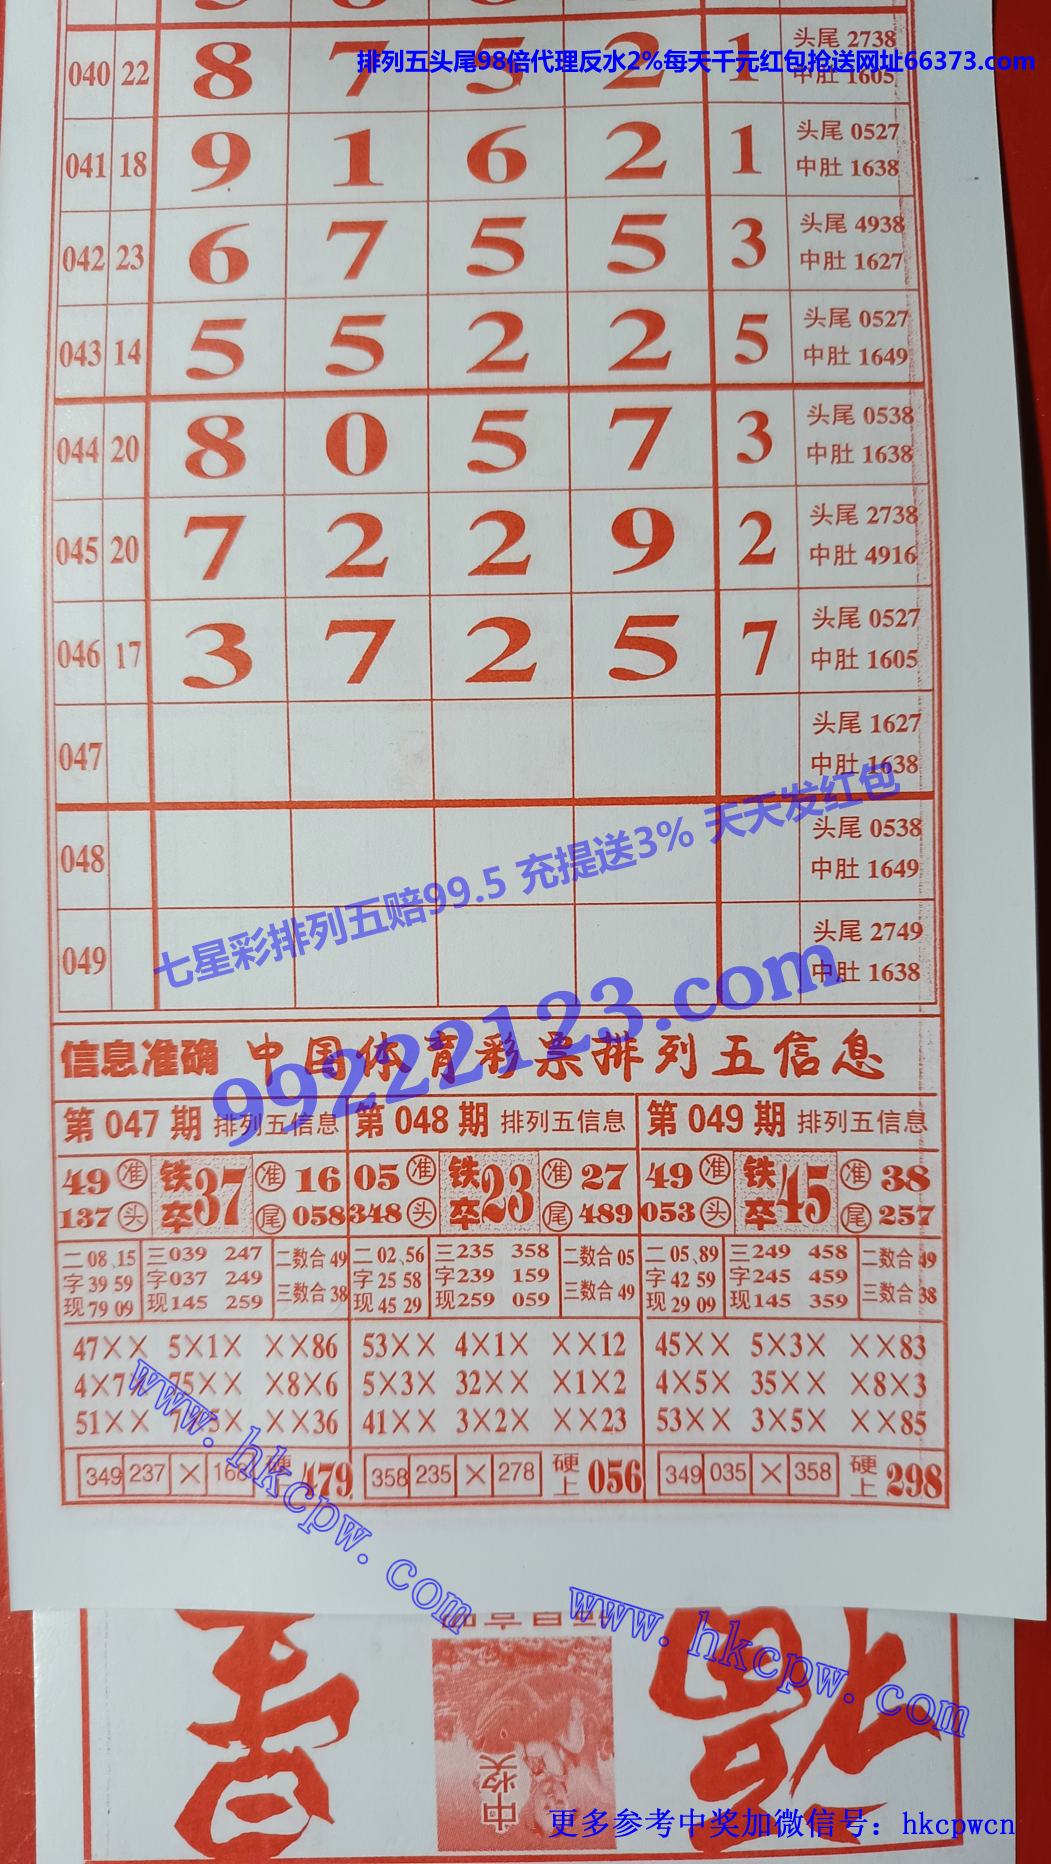 040 22 8 7 5 2 1 头尾 2738
中肚 1605
排列五头尾98倍代理反水2%每天千元红包抢送网址66373.com
041 18 9 1 6 2 1 头尾 0527
中肚 1638
042 23 6 7 5 5 3 头尾 4938
中肚 1627
043 14 5 5 2 2 5 头尾 0527
中肚 1649
044 20 8 0 5 7 3 头尾 0538
中肚 1638
045 20 7 2 2 9 2 头尾 2738
中肚 4916
046 17 3 7 2 5 7 头尾 0527
中肚 1605
047 头尾 1627
中肚 1638
048 头尾 0538
中肚 1649
049 头尾 2749
中肚 1638
七星彩排列五赔99.5 充提送3% 天天发红包
99222123.com
信息准确 中国体育彩票排列五信息
第 047 期 排列五信息 第 048 期 排列五信息 第 049 期 排列五信息
49 准 铁卒 37 准 16 05 准 铁卒 23 准 27 49 准 铁卒 45 准 38
137 头 尾 058 348 头 尾 489 053 头 尾 257
二 08、15 三 039 247 二数合 49 二 02、56 三 235 358 二数合 05 二 05、89 三 249 458 二数合 49
字 39 59 字 037 249 字 25 58 字 239 159 字 42 59 字 245 459
现 79 09 现 145 259 三数合 38 现 45 29 现 259 059 三数合 49 现 29 09 现 145 359 三数合 38
47×× 5×1× ××86 53×× 4×1× ××12 45×× 5×3× ××83
4×7× 75×× ×8×6 5×3× 32×× ×1×2 4×5× 35×× ×8×3
51×× 7×5× ××36 41×× 3×2× ××23 53×× 3×5× ××85
349 237 × 168 硬上 179 358 235 × 278 硬上 056 349 035 × 358 硬上 298
www.hkcpw.com
www.hkcpw.com
中奖
更多参考中奖加微信号：hkcpwcn